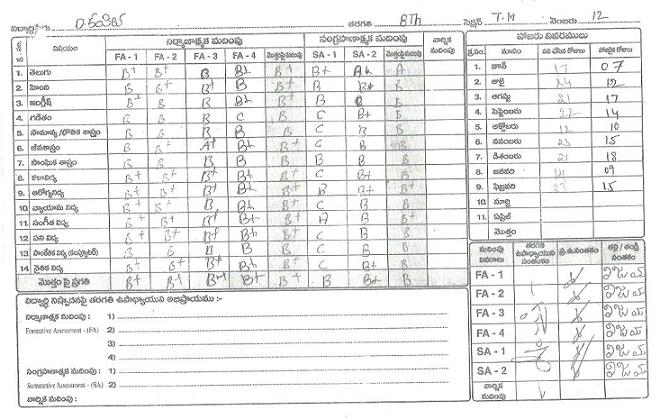 D. తరగతి 8Th సెక్షన్ T.M నెంబరు 12
నిర్మాణాత్మక మదింపు సంగ్రహణాత్మక మదింపు వార్షిక మదింపు హాజరు వివరములు
విషయం FA - 1 FA - 2 FA - 3 FA - 4 SA - 1 SA - 2 క్ర.సం. మాసం పని చేసిన రోజులు హాజరైన రోజులు
1. తెలుగు B+ B+ B B+ B+ B+ A+ A 1. జూన్ 17 07
2. హింది B B+ B B+ B+ B B+ B 2. జులై 24 12
3. ఇంగ్లీష్ B+ B B B+ B+ B B 3. ఆగష్టు 21 17
4. గణితం B B B C B C B+ B 4. సెప్టెంబరు 22 14
5. సామాన్య /భౌతిక శాస్త్రం B B B B B C B B 5. అక్టోబరు 12 10
6. జీవశాస్త్రం B+ B+ A+ B+ B+ C B B 6. నవంబరు 23 15
7. సాంఘిక శాస్త్రం B B B B B B B B 7. డిశంబరు 21 18
8. కళావిద్య B+ B+ B+ B+ B+ C B B 8. జనవరి 09
9. ఆరోగ్యవిద్య B+ B+ B+ B+ B+ B B+ B+ 9. ఫిబ్రవరి 23 15
10. వ్యాయామ విద్య B+ B+ B+ B+ B+ C B B 10. మార్చి
11. సంగీత విద్య B+ B+ B+ B+ B+ A B B+ 11. ఏప్రిల్
12. పని విద్య B+ B+ B+ B+ B+ C B B మొత్తం
13. సాంకేతిక విద్య (కంప్యూటర్) B B B B B C B B
14. నైతిక విద్య B+ B+ B+ B+ B+ C B+ B
మొత్తం పై ప్రగతి B+ B+ B+ B+ B+ B B+ B
మదింపు వివరాలు తరగతి ఉపాధ్యాయుని సంతకం ప్ర.ఉ.సంతకం తల్లి / తండ్రి సంతకం
FA - 1 విజయ
FA - 2 విజయ
FA - 3 విజయ
FA - 4 విజయ
SA - 1 విజయ
SA - 2 విజయ
వార్షిక మదింపు
విద్యార్థి నిష్పాదనపై తరగతి ఉపాధ్యాయుని అభిప్రాయము :-
నిర్మాణాత్మక మదింపు : 1)
Formative Assessment - (FA) 2)
3)
4)
సంగ్రహణాత్మక మదింపు : 1)
Summative Assessment - (SA) 2)
వార్షిక మదింపు :